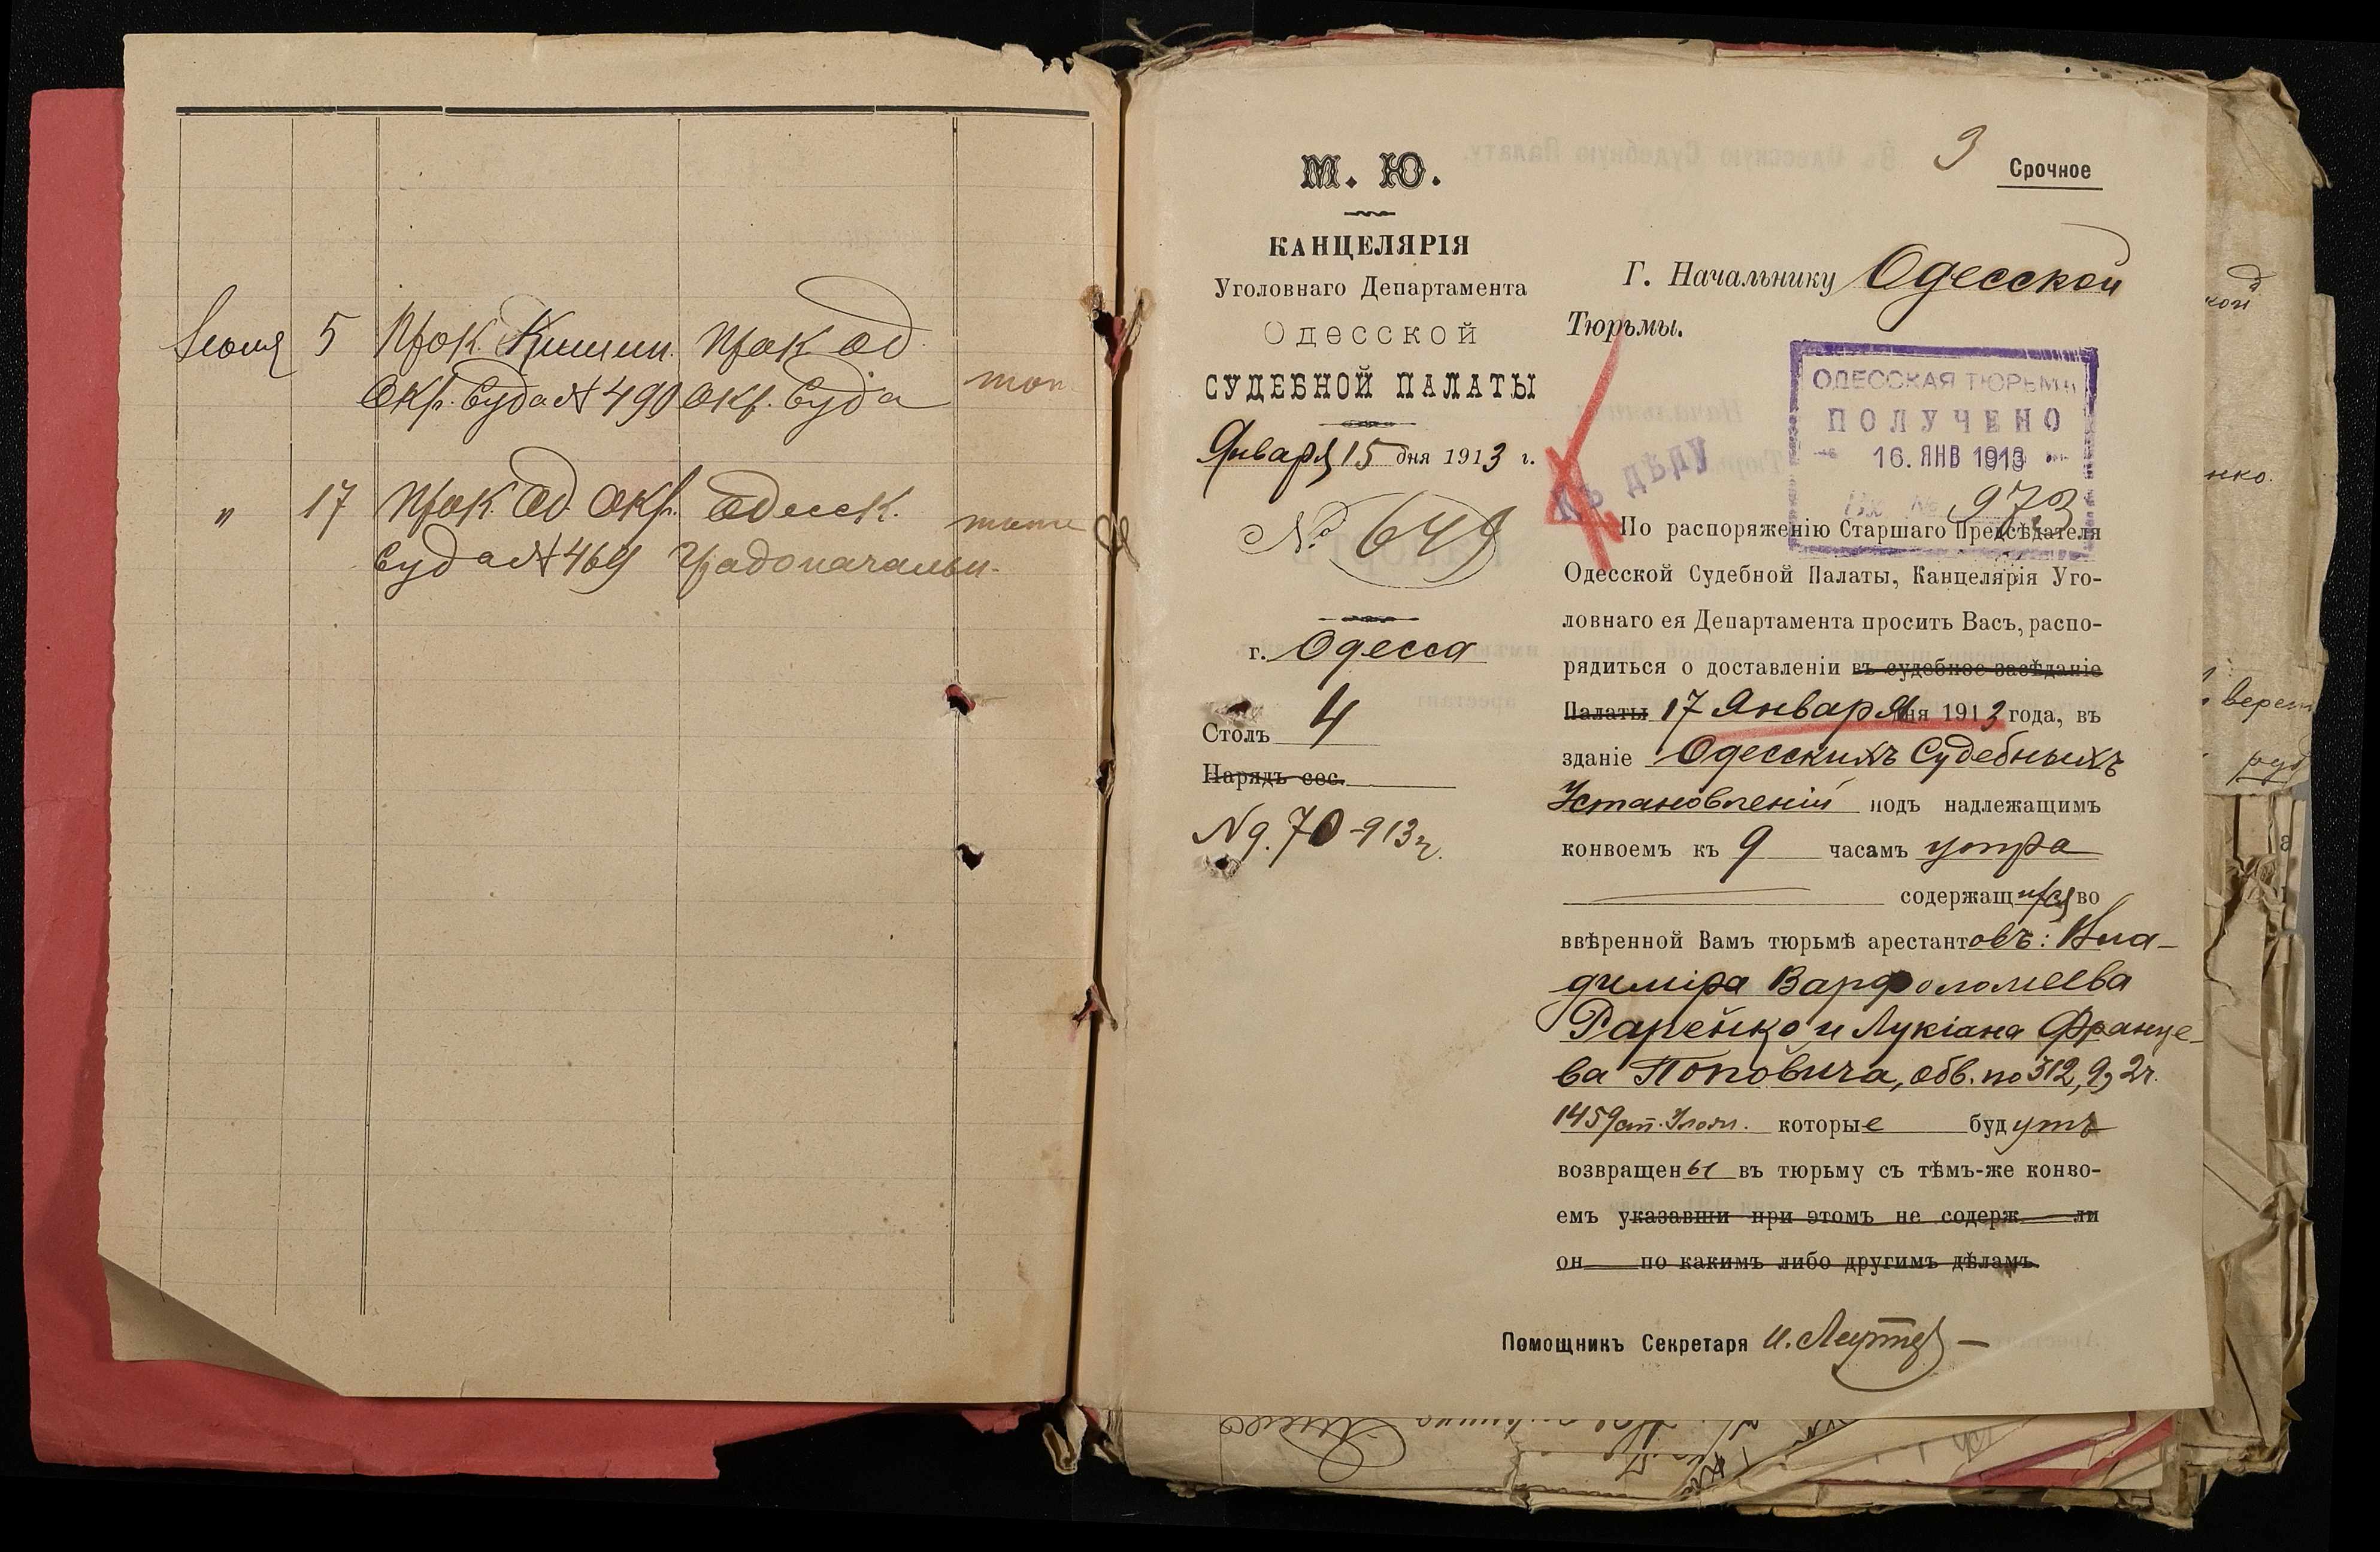 Іюня 5 Прок. Кишин. Прок. Од.
Окр. Суда № 490 Окр. Суда
" 17 Прок. Од. Окр. Одесск.
Суда № 469 Градоначальн.
3
Срочное
М. Ю.
КАНЦЕЛЯРІЯ
Уголовнаго Департамента
Одесской
СУДЕБНОЙ ПАЛАТЫ
Января 15 дня 1913 г.
№ 649
г. Одесса
Столъ 4
Нарядъ сес.
№ 70-913 г.
Г. Начальнику Одесской
Тюрьмы.
ОДЕССКАЯ ТЮРЬМА
ПОЛУЧЕНО
16. ЯНВ 1913
Вх № 973
Къ дѣлу
По распоряженію Старшаго Предсѣдателя
Одесской Судебной Палаты, Канцелярія Уго-
ловнаго ея Департамента проситъ Васъ, распо-
рядиться о доставленіи въ судебное засѣданіе
Палаты 17 Января дня 1913 года, въ
зданіе Одесскихъ Судебныхъ
Установленій подъ надлежащимъ
конвоемъ къ 9 часамъ утра
содержащихся во
ввѣренной Вамъ тюрьмѣ арестантовъ: Вла-
диміра Варфоломеева
Рапейко и Лукіана Францe-
ва Поповича, обв. по 312, 9, 2 ч.
1459 ст. Улож. которые будутъ
возвращены въ тюрьму съ тѣмъ-же конво-
емъ указавши при этомъ не содерж ли
он по какимъ либо другимъ дѣламъ.
Помощникъ Секретаря И.